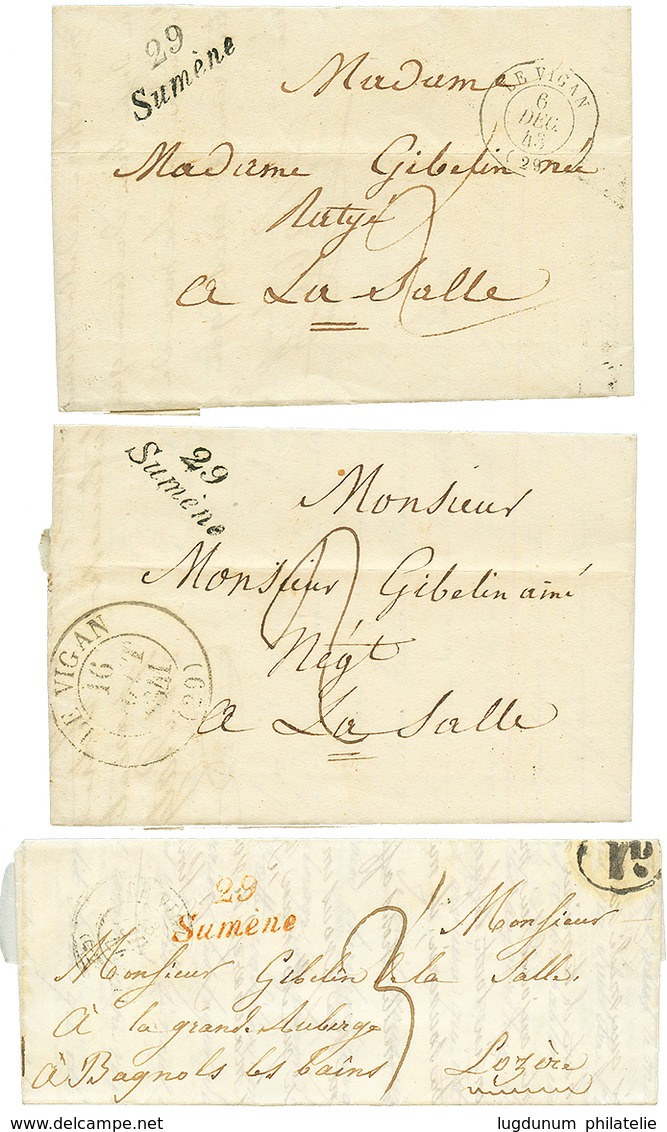 29
Sumène
LE VIGAN
6
DEC.
43
(29)
Madame
Madame Gibelin née
à La Salle
29
Sumène
LE VIGAN
16
1841
(29)
Monsieur
Monsieur Gibelin ainé
Négt
à La Salle
29
Sumène
Monsieur
Monsieur Gibelin de la Salle
à la grande Auberge
à Bagnols les bains
Lozère
lugdunum philatelie